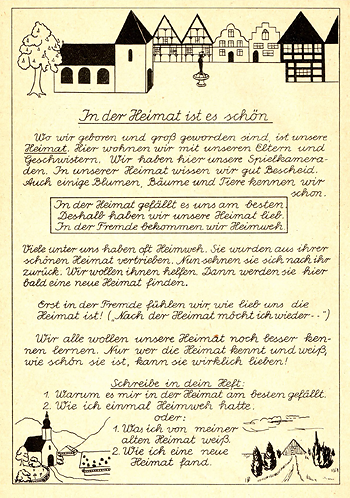 In der Heimat ist es schön
Wo wir geboren und groß geworden sind, ist unsere
Heimat. Hier wohnen wir mit unseren Eltern und
Geschwistern. Wir haben hier unsere Spielkamera-
den. In unserer Heimat wissen wir gut Bescheid.
Auch einige Blumen, Bäume und Tiere kennen wir
schon.
In der Heimat gefällt es uns am besten.
Deshalb haben wir unsere Heimat lieb.
In der Fremde bekommen wir Heimweh.
Viele unter uns haben oft Heimweh. Sie wurden aus ihrer
schönen Heimat vertrieben. Nun sehnen sie sich nach ihr
zurück. Wir wollen ihnen helfen. Dann werden sie hier
bald eine neue Heimat finden.
Erst in der Fremde fühlen wir, wie lieb uns die
Heimat ist! („Nach der Heimat möcht ich wieder - - “)
Wir alle wollen unsere Heimat noch besser ken-
nen lernen. Nur wer die Heimat kennt und weiß,
wie schön sie ist, kann sie wirklich lieben!
Schreibe in dein Heft:
1. Warum es mir in der Heimat am besten gefällt.
2. Wie ich einmal Heimweh hatte.
oder:
1. Was ich von meiner
alten Heimat weiß.
2. Wie ich eine neue
Heimat fand.